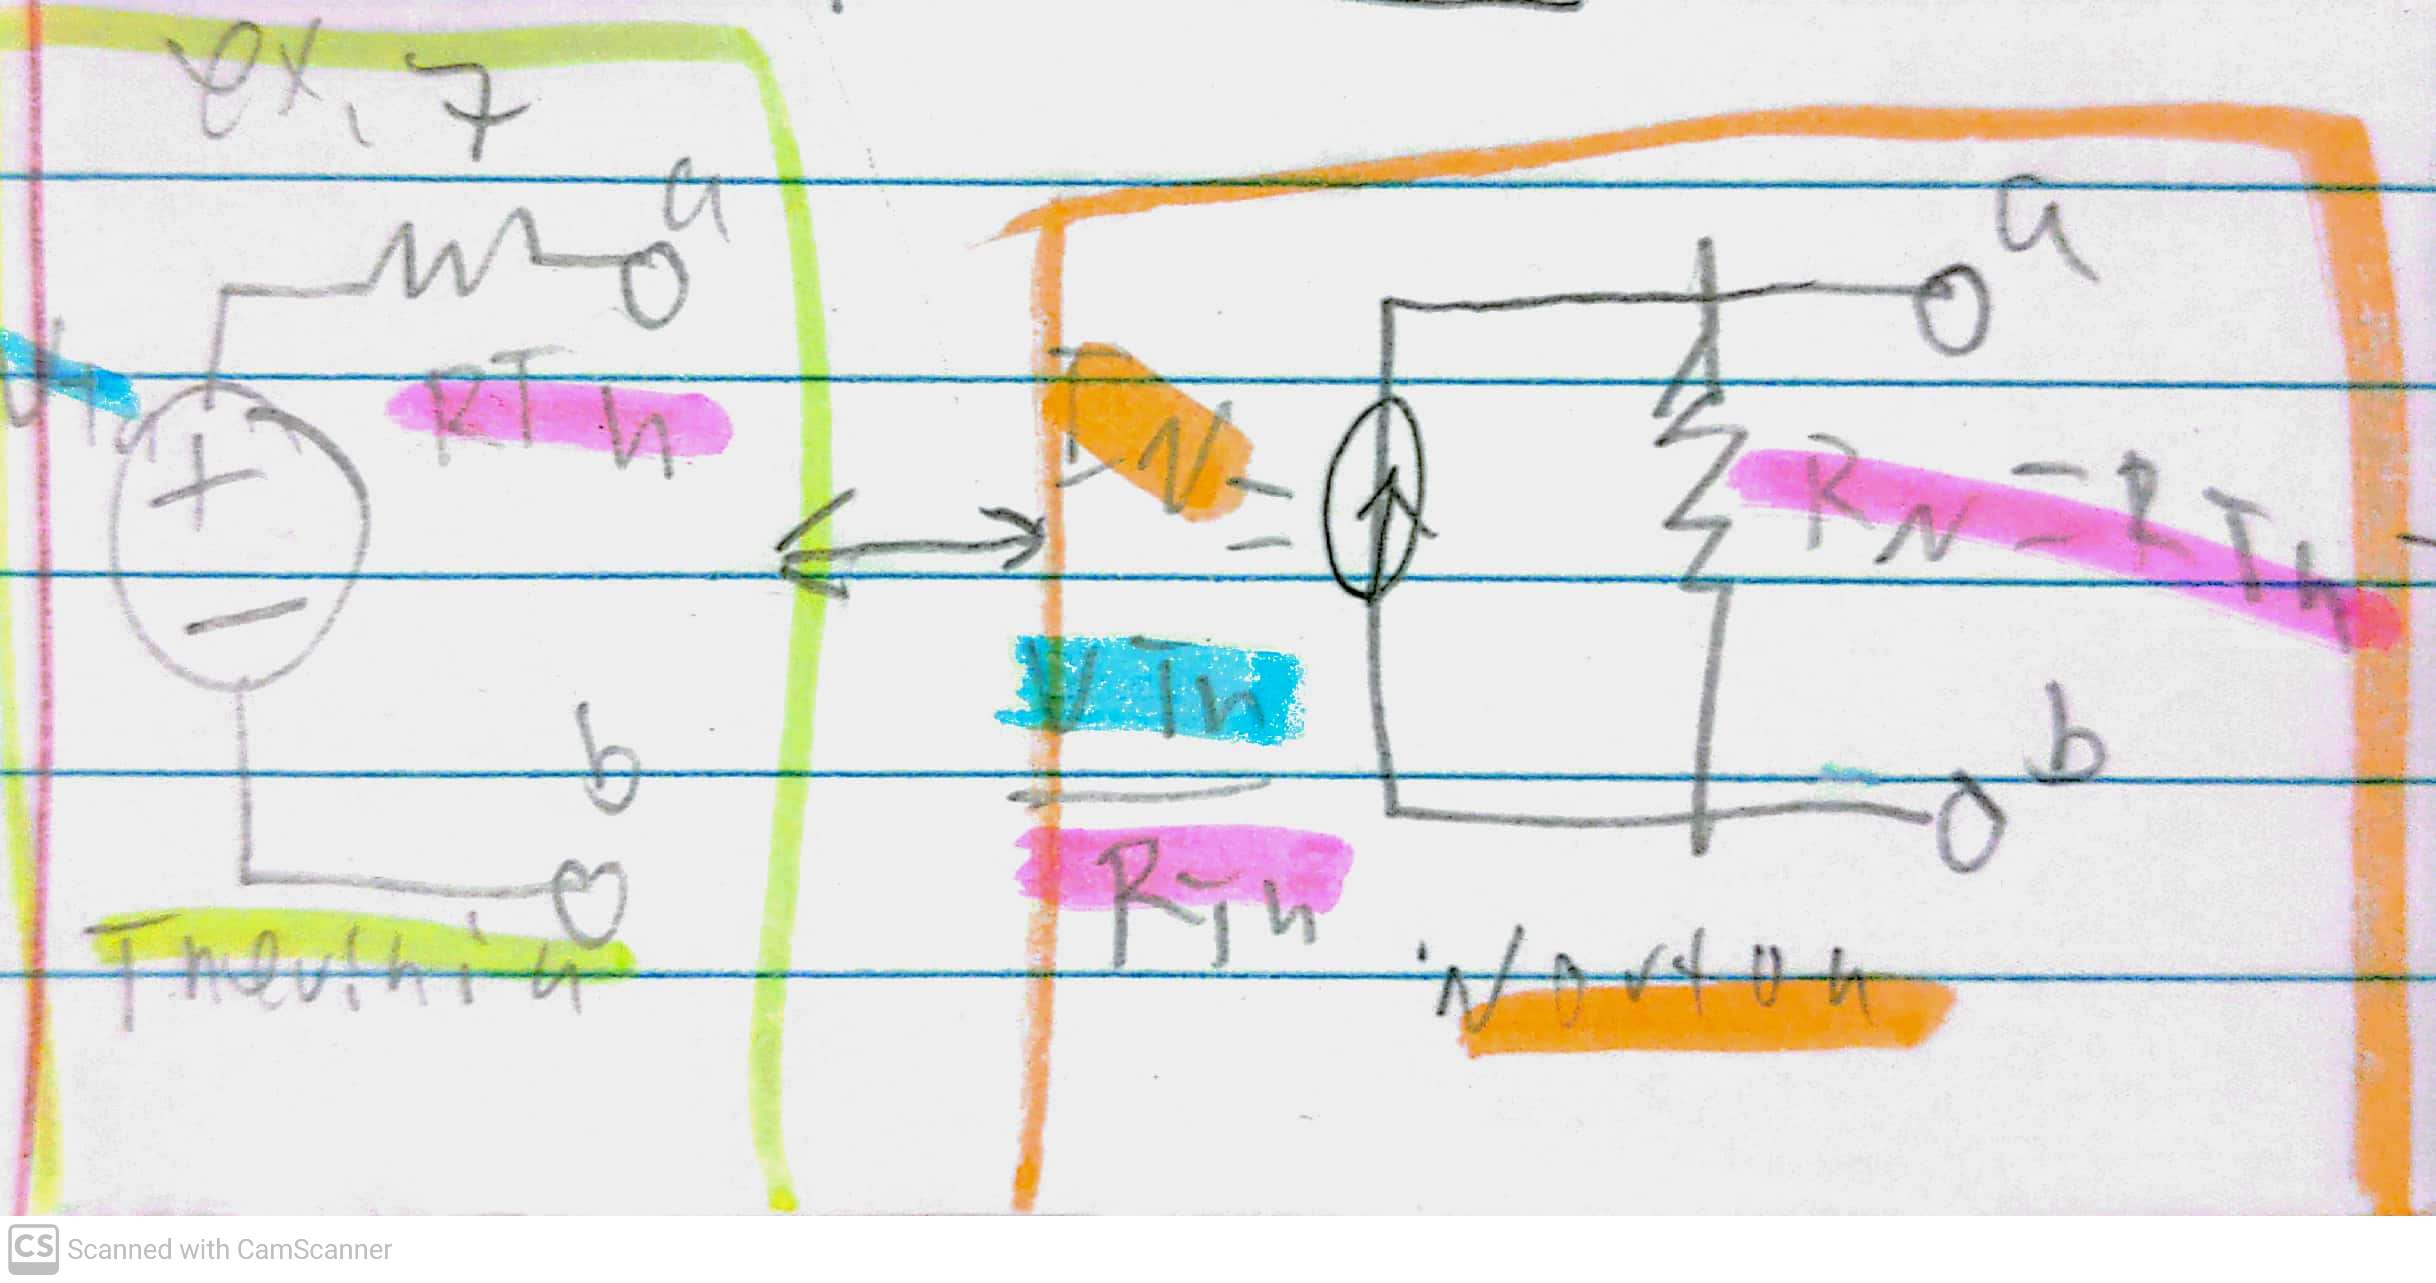 ex, 7
a
RTh
b
Thevinin
IN =
VTh
RTh
a
RN = RTh
b
Norton
CS Scanned with CamScanner